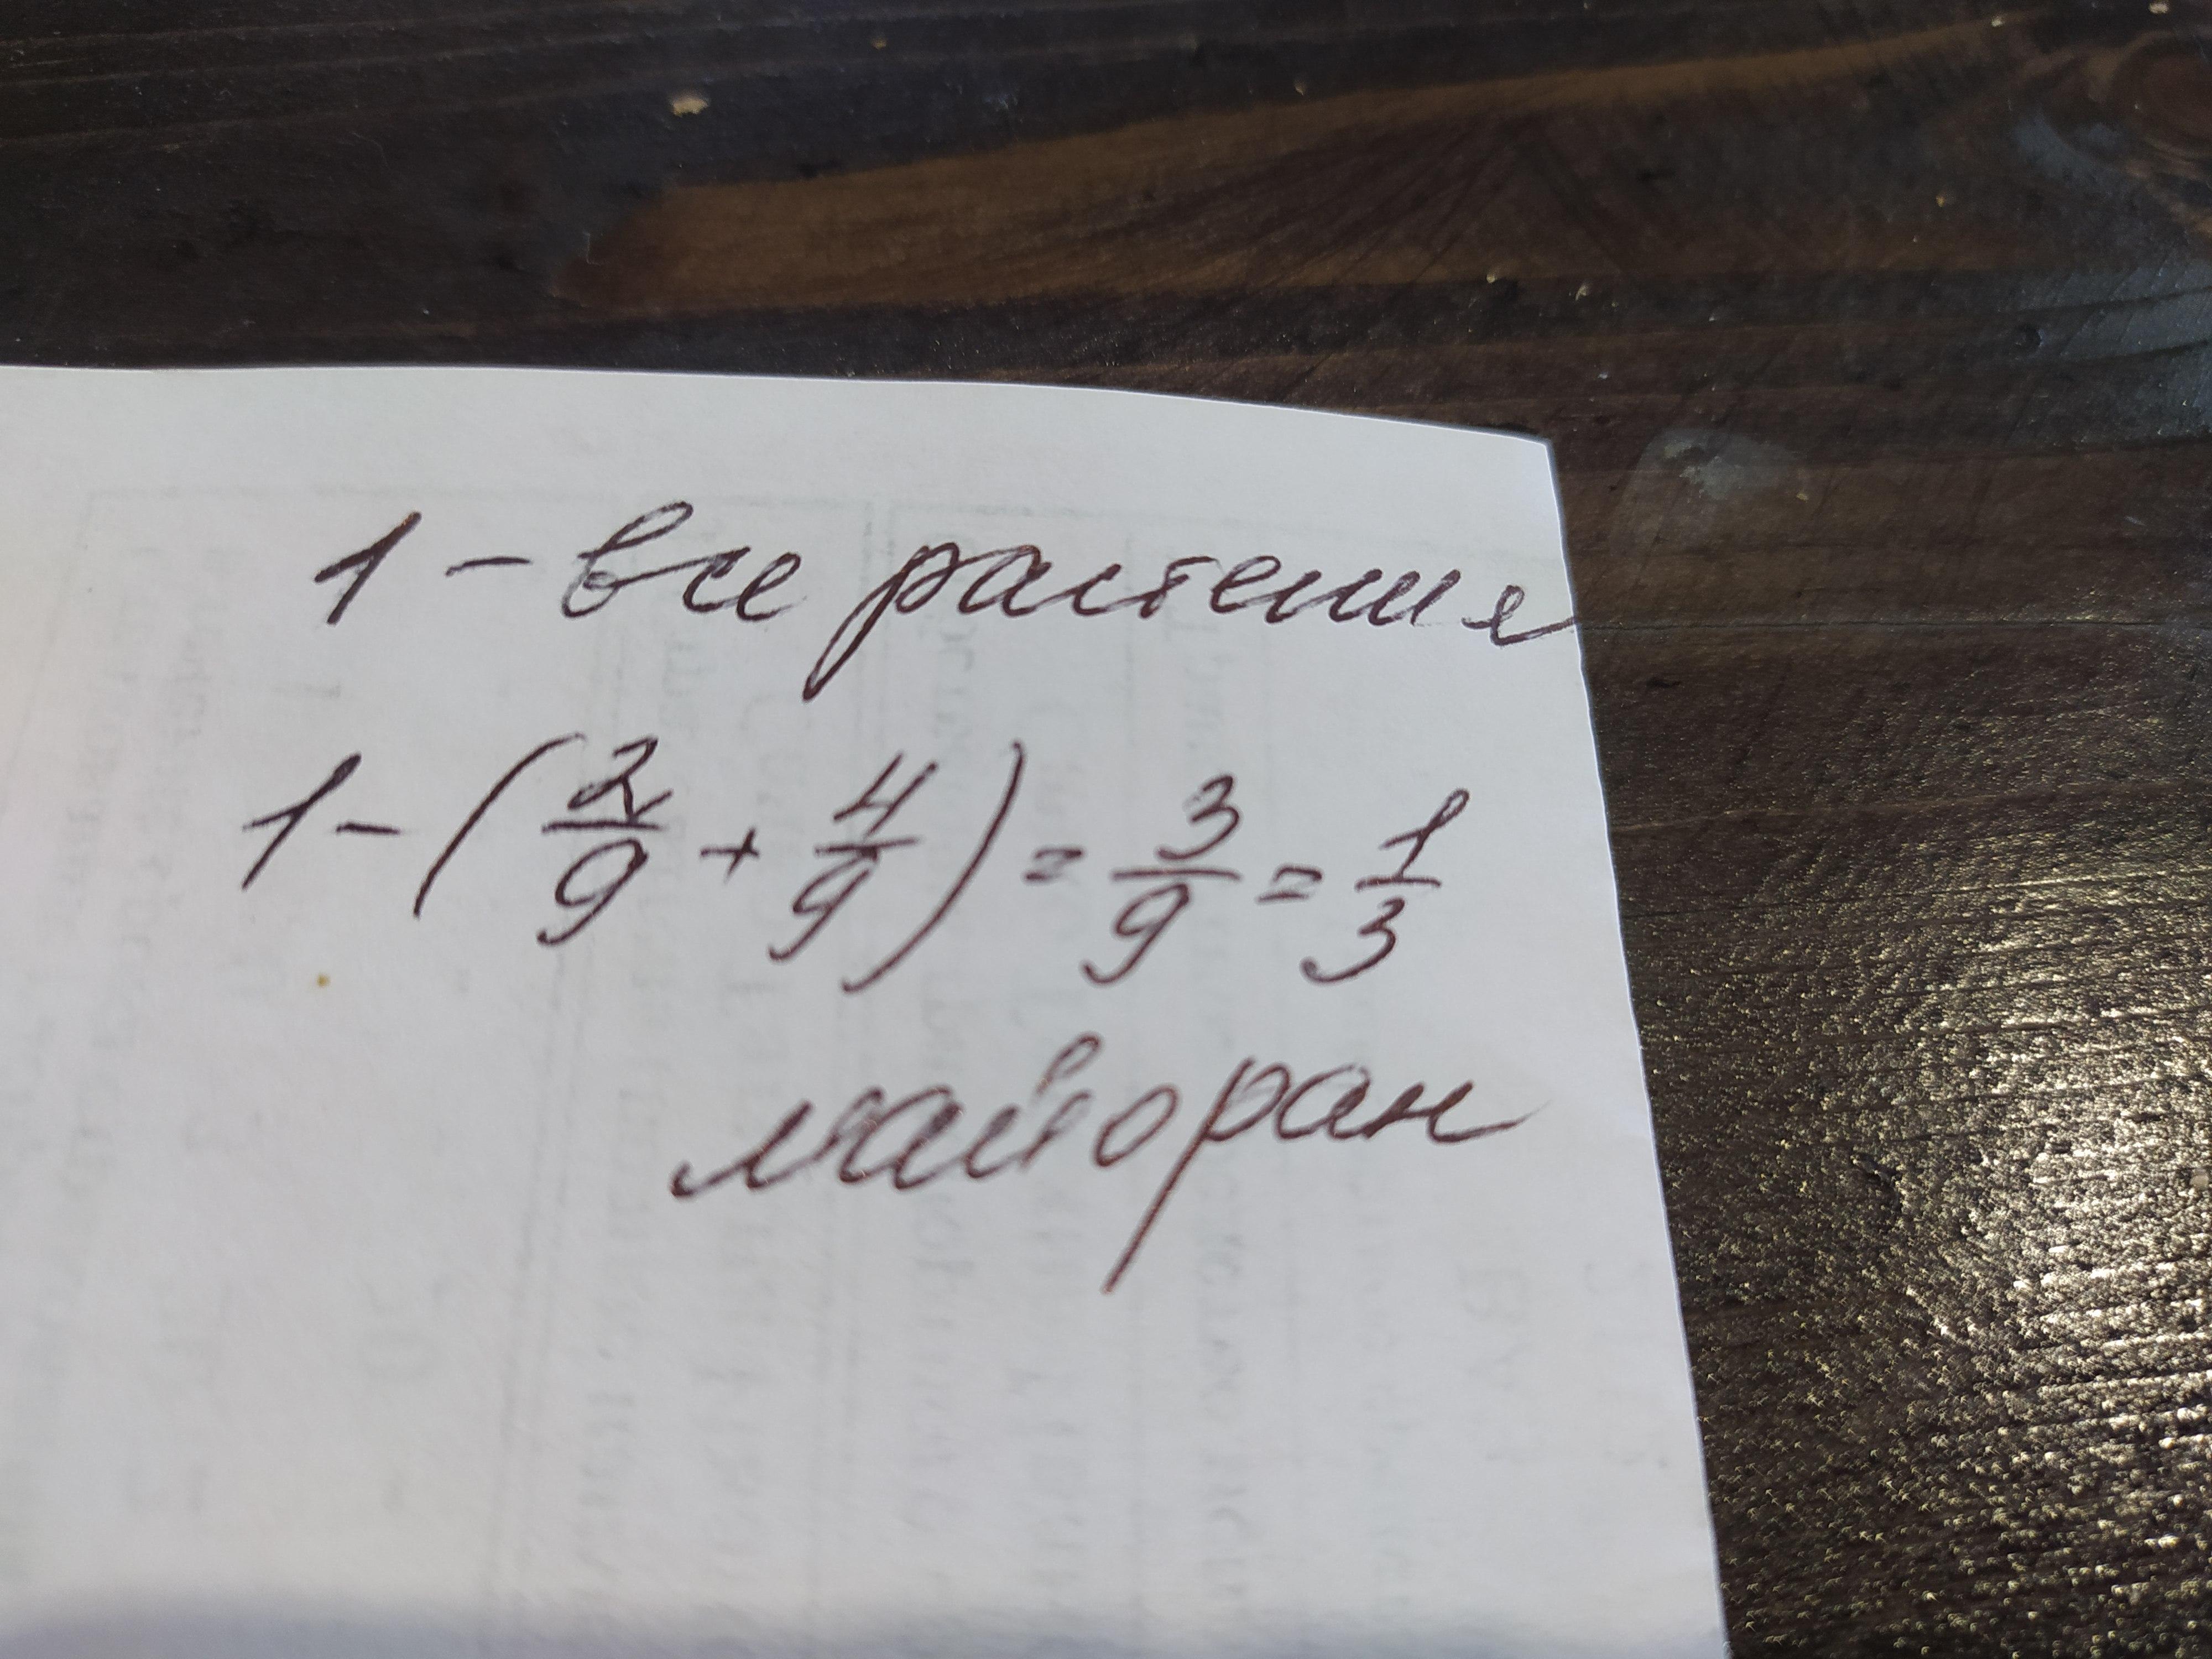 1 - все растения
1 - (2/9 + 4/9) = 3/9 = 1/3
майоран